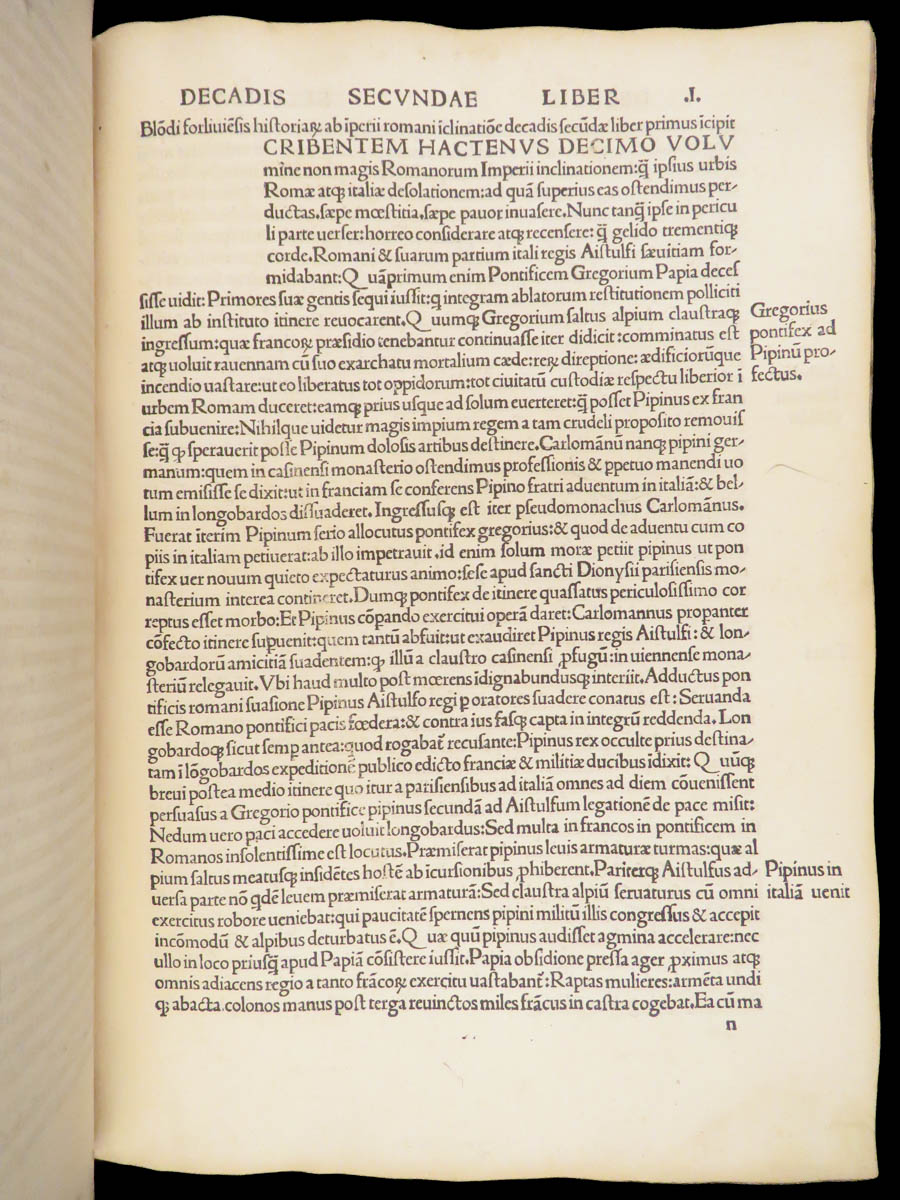 DECADIS SECVNDAE LIBER .I.
Blōdi forliuiēsis historiaꝝ ab īperii romani īclinatiōe decadis secūdæ liber primus īcipit
CRIBENTEM HACTENVS DECIMO VOLV
mīne non magis Romanorum Imperii inclinationem:q̄ ipsius urbis
Romæ atqꝫ italiæ desolationem:ad quā superius eas ostendimus per-
ductas,sæpe mœstitia,sæpe pauor inuasere.Nunc tanq̄ ipse in pericu
li parte uerser:horreo considerare atqꝫ recensere:q̄ gelido trementiqꝫ
corde.Romani & suarum partium itali regis Aistulfi sæuitiam for-
midabant:Quāprimum enim Pontificem Gregorium Papia decef
sisse uidit:Primores suæ gentis sequi iussit:q integram ablatorum restitutionem polliciti
illum ab instituto itinere reuocarent.Quumqꝫ Gregorium saltus alpium claustraqꝫ
ingressum:quæ francoꝝ præsidio tenebantur continuasse iter didicit:comminatus est
atqꝫ uoluit rauennam cū suo exarchatu mortalium cæde:reꝝ direptione:ædificiorūque
incendio uastare:ut eo liberatus tot oppidorum:tot ciuitatū custodiæ respectu liberior ī
urbem Romam duceret:eamqꝫ prius usque ad solum euerteret:q̄ posset Pipinus ex fran
cia subuenire:Nihilque uidetur magis impium regem a tam crudeli proposito remouis
se:q̄ ꝙ sperauerit posse Pipinum dolosis artibus destinere.Carlomānū nanqꝫ pipini ger-
manum:quem in casinensi monasterio ostendimus professionis & ꝑpetuo manendi uo
tum emisisse se dixit:ut in franciam se conferens Pipino fratri aduentum in italiā:& bel-
lum in longobardos dissuaderet.Ingressusqꝫ est iter pseudomonachus Carlomānus.
Fuerat īterim Pipinum serio allocutus pontifex gregorius:& quod de aduentu cum co
piis in italiam petiuerat:ab illo impetrauit,id enim solum moræ petiit pipinus ut pon
tifex uer nouum quieto expectaturus animo:sese apud sancti Dionysii parisiensis mo-
nasterium interea contineret.Dumqꝫ pontifex de itinere quassatus periculosissimo cor
reptus esset morbo:Et Pipinus cōpando exercitui operā daret:Carlomannus propanter
cōfecto itinere supuenit:quem tantū abfuit:ut exaudiret Pipinus regis Aistulfi:& lon-
gobardorū amicitiā suadentem:ꝙ illū a claustro casinensi ꝓfugū:in uiennense mona-
steriū relegauit.Vbi haud multo post mœrens idignabundusqꝫ interiit.Adductus pon
tificis romani suasione Pipinus Aistulfo regi ꝑ oratores suadere conatus est:Seruanda
esse Romano pontifici pacis fœdera:& contra ius fasqꝫ capta in integrū reddenda.Lon
gobardoqꝫ sicut semꝑ antea:quod rogabat̄ recusante:Pipinus rex occulte prius destina-
tam ī lōgobardos expeditionē publico edicto franciæ & militiæ ducibus idixit:Quūqꝫ
breui postea medio itinere quo itur a parisiensibus ad italiā omnes ad diem cōuenissent
persuasus a Gregorio pontifice pipinus secundā ad Aistulfum legationē de pace misit:
Nedum uero paci accedere uoluit longobardus:Sed multa in francos in pontificem in
Romanos insolentissime est locutus.Præmiserat pipinus leuis armaturæ turmas:quæ al
pium saltus meatusqꝫ insidētes hostē ab īcursionibus ꝓhiberent.Pariterqꝫ Aistulfus ad-
uersa parte nō qdē leuem præmiserat armaturā:Sed claustra alpiū seruaturus cū omni
exercitus robore ueniebat:qui paucitatē spernens pipini militū illis congressus & accepit
incōmodū & alpibus deturbatus ē.Quæ quū pipinus audisset agmina accelerare:nec
ullo in loco priusq̄ apud Papiā cōsistere iussit.Papia obsidione pressa ager ꝓximus atqꝫ
omnis adiacens regio a tanto frācoꝝ exercitu uastabant̄:Raptas mulieres:armēta undi
qꝫ abacta,colonos manus post terga reuinctos miles frācus in castra cogebat.Ea cū ma
n
Gregorius
pontifex ad
Pipinū pro-
fectus.
Pipinus in
italiā uenit